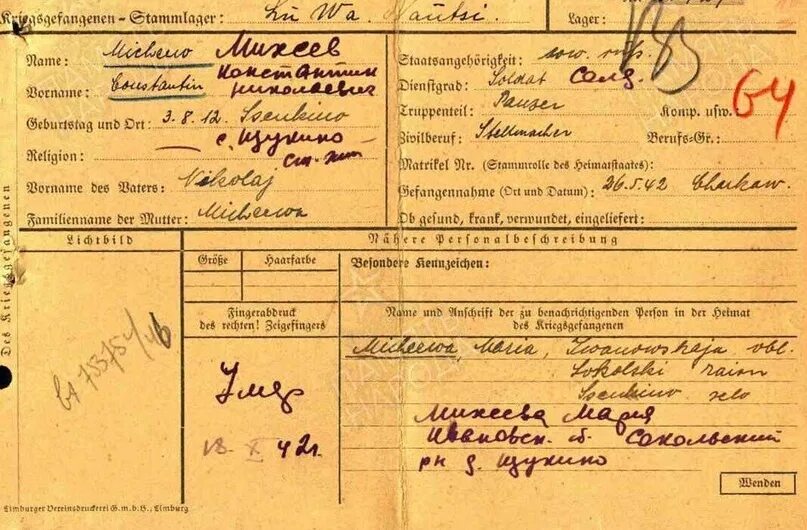 Kriegsgefangenen-Stammlager:
Lager:
Name: Micheeo Михеев
Vorname: Constantin Константин Николаевич
Geburtstag und Ort: 3.8.12. Sscukino
с. Щукино
Religion:
Vorname des Vaters: Nikolaj
Familienname der Mutter: Micheewa
Staatsangehörigkeit: sow. rus.
Dienstgrad: Soldat Солд.
Truppenteil: Panzer Komp. usw.: 64
Zivilberuf: Stellmacher Berufs-Gr.:
Matrikel Nr. (Stammrolle des Heimatstaates):
Gefangennahme (Ort und Datum): 26.5.42 Charkow.
Ob gesund, krank, verwundet, eingeliefert:
Des Kriegsgefangenen
Lichtbild
Nähere Personalbeschreibung
Größe
Haarfarbe
Besondere Kennzeichen:
Fingerabdruck
des rechten! Zeigefingers
Name und Anschrift der zu benachrichtigenden Person in der Heimat
des Kriegsgefangenen
Умер
18. X 42г.
Micheewa Maria, Iwanowskaja obl.
Sokolski raion
Sscukino selo
Михеева Мария
Ивановск. об. Сокольский
рн д. Щукино
Wenden
Limburger Vereinsdruckerei G.m.b.H., Limburg